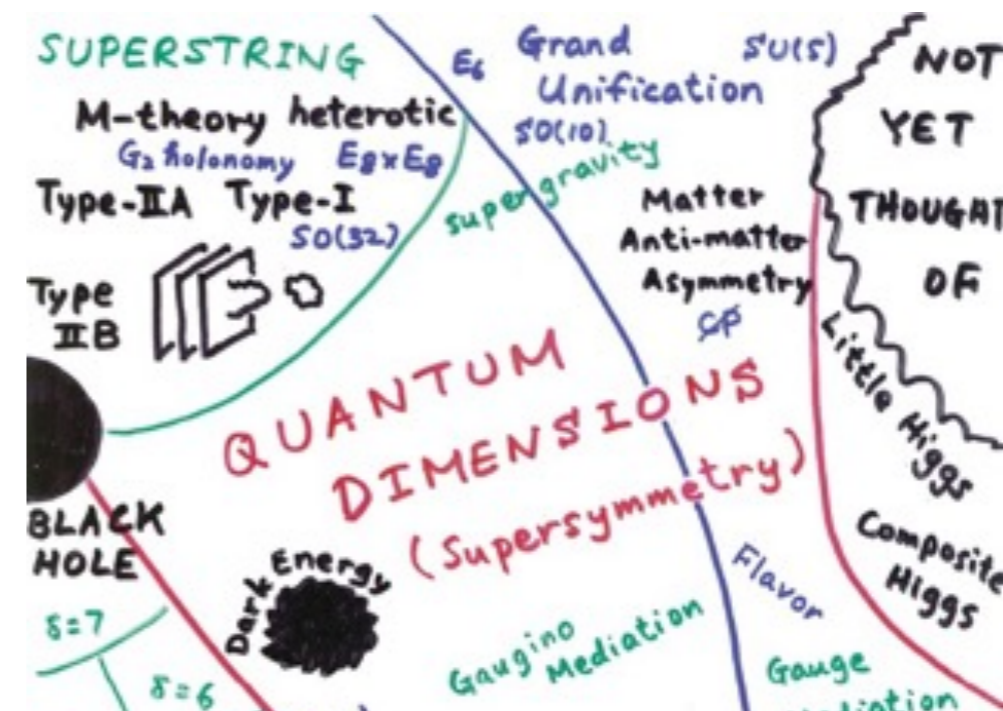 SUPERSTRING
M-theory heterotic
G₂ holonomy E8xE8
Type-IIA Type-I
SO(32)
Type
IIB
E6
Grand
Unification
SU(5)
SO(10)
supergravity
Matter
Anti-matter
Asymmetry
CP
NOT
YET
THOUGHT
OF
Little Higgs
Composite
Higgs
QUANTUM
DIMENSIONS
(Supersymmetry)
BLACK
HOLE
Dark Energy
δ=7
δ=6
Gaugino
Mediation
Flavor
Gauge